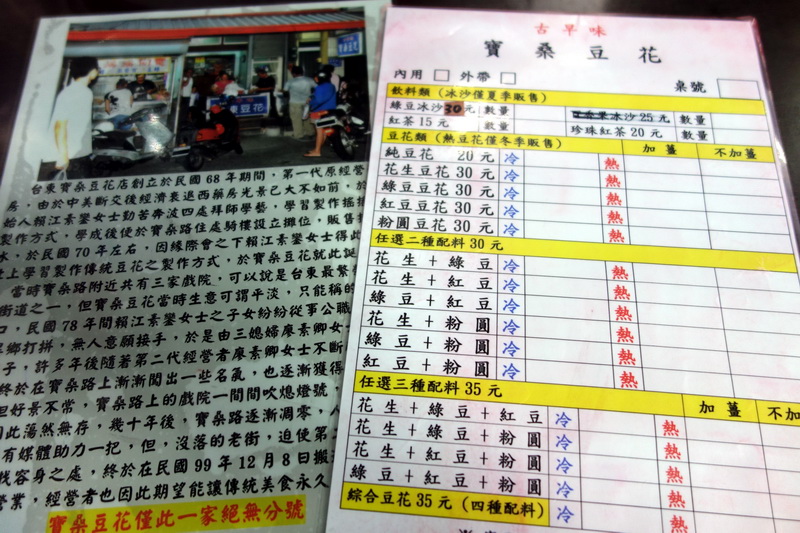 台東寶桑豆花店創立於民國68年期間，第一代原經營
房，由於中美斷交後經濟衰退西藥房光景已大不如前，於
始人賴江素鑾女士勤苦奔波四處拜師學藝，學習製作搖
製作方式，學成後便於寶桑路住處騎樓設立攤位，販售
水，於民國70年左右，因緣際會之下賴江素鑾女士得此
上學習製作傳統豆花之製作方式，於寶桑豆花就此誕
當時寶桑路附近共有三家戲院，可以說是台東最繁
街道之一，但寶桑豆花當時生意可謂平淡，只能稱的
口，民國78年間賴江素鑾女士之子女紛紛從事公職
鄉打拼，無人意願接手，於是由三媳婦廖素卿女士
子，許多年後隨著第二代經營者廖素卿女士不斷
終於在寶桑路上漸漸闖出一些名氣，也逐漸獲得
但好景不常，寶桑路上的戲院一間間吹熄燈號
因此蕩然無存，幾十年後，寶桑路逐漸凋零，
有媒體助力一把，但，沒落的老街，迫使第
找容身之處，終於在民國99年12月8日搬
營業，經營者也因此期望能讓傳統美食永久
寶桑豆花僅此一家絕無分號
古早味
寶桑豆花
內用 外帶 桌號
飲料類（冰沙僅夏季販售）
綠豆冰沙30元 數量 冰沙25元 數量
紅茶15元 數量 珍珠紅茶20元 數量
豆花類（熱豆花僅冬季販售） 加薑 不加薑
純豆花 20元 冷 熱
花生豆花 30元 冷 熱
綠豆豆花 30元 冷 熱
紅豆豆花 30元 冷 熱
粉圓豆花 30元 冷 熱
任選二種配料30元
花生＋綠豆 冷 熱
花生＋紅豆 冷 熱
綠豆＋紅豆 冷 熱
花生＋粉圓 冷 熱
綠豆＋粉圓 冷 熱
紅豆＋粉圓 冷 熱
任選三種配料35元 加薑 不加
花生＋綠豆＋紅豆 冷 熱
花生＋綠豆＋粉圓 冷 熱
花生＋紅豆＋粉圓 冷 熱
綠豆＋紅豆＋粉圓 冷 熱
綜合豆花35元（四種配料） 冷 熱